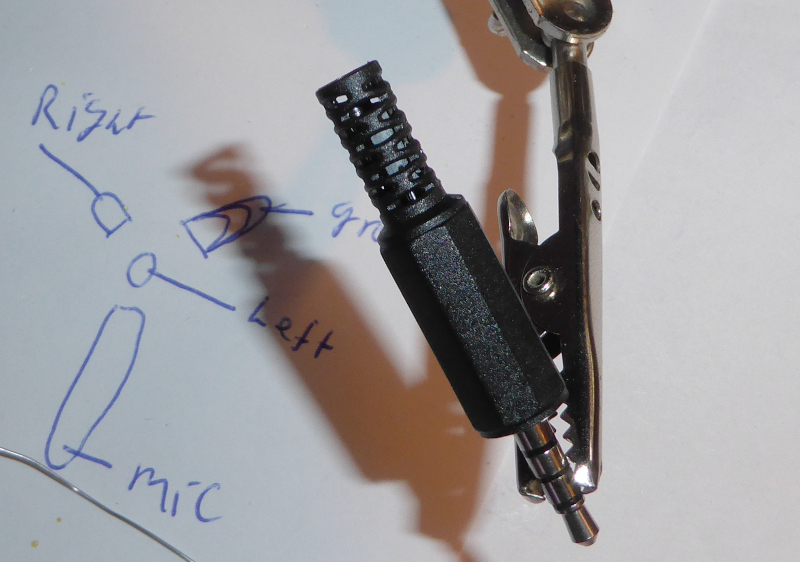 Right
gr
Left
Mic